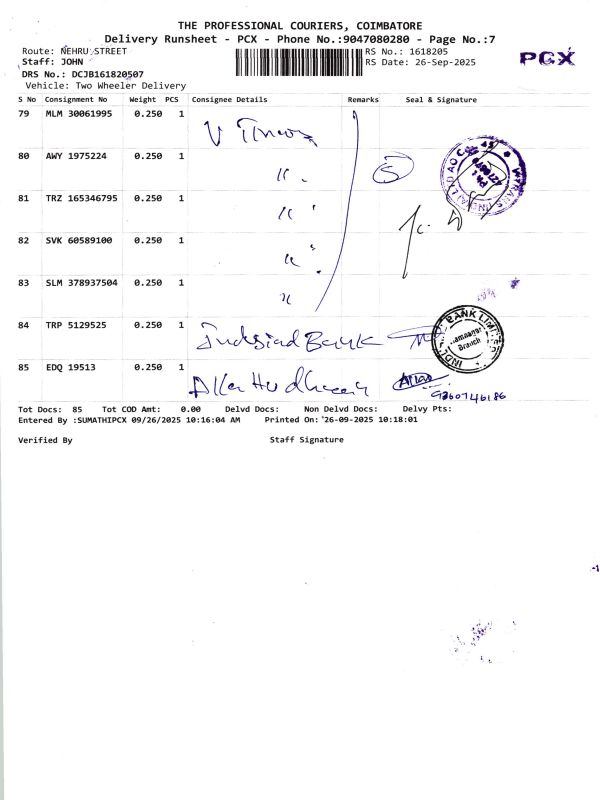 THE PROFESSIONAL COURIERS, COIMBATORE
Delivery Runsheet - PCX - Phone No.:9047080280 - Page No.:7
Route: NEHRU STREET
RS No.: 1618205
PCX
Staff: JOHN
RS Date: 26-Sep-2025
DRS No.: DCJB161820507
Vehicle: Two Wheeler Delivery
S No Consignment No Weight PCS Consignee Details Remarks Seal & Signature
79 MLM 30061995 0.250 1
80 AWY 1975224 0.250 1 " 5
81 TRZ 165346795 0.250 1 "
82 SVK 60589100 0.250 1 "
83 SLM 378937504 0.250 1 "
84 TRP 5129525 0.250 1 Indusind Bank
BANK LIMITED
Branch
85 EDQ 19513 0.250 1
9360746186
Tot Docs: 85 Tot COD Amt: 0.00 Delvd Docs: Non Delvd Docs: Delvy Pts:
Entered By :SUMATHIPCX 09/26/2025 10:16:04 AM Printed On:'26-09-2025 10:18:01
Verified By Staff Signature